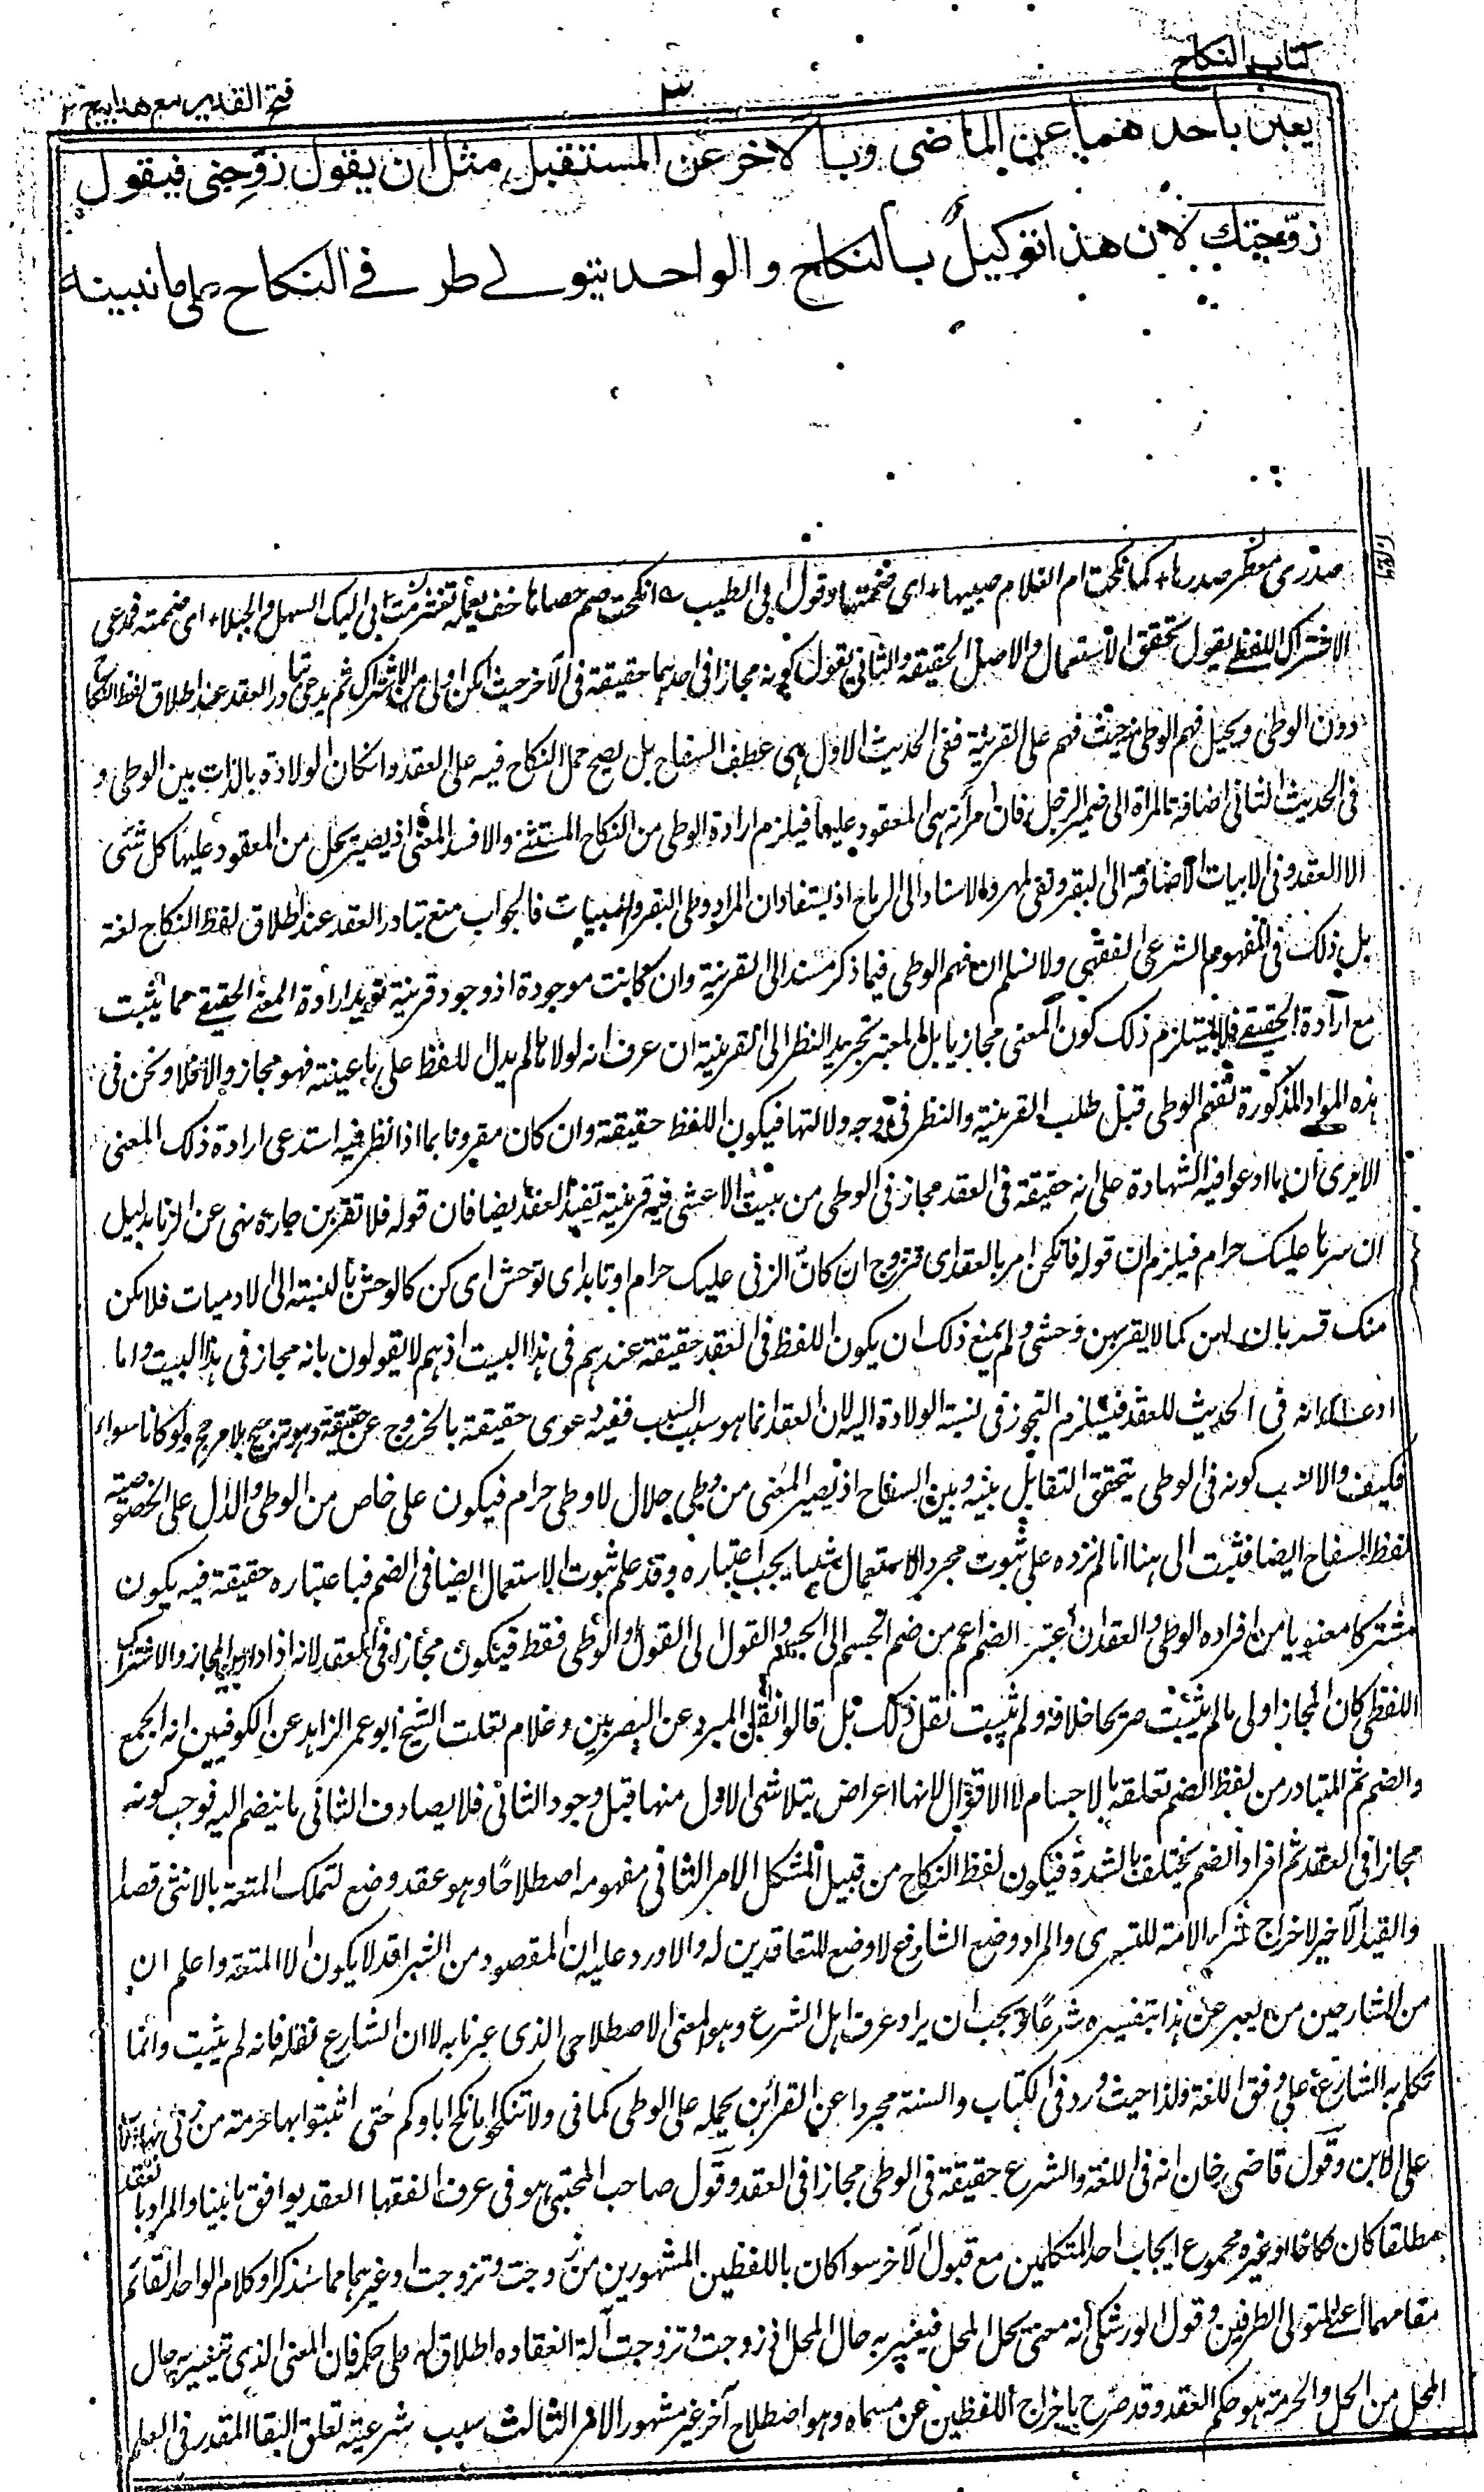 كتاب النكاح
٣
فتح القدير مع هدايه ج ٢
يعبر باحدهما عن الماضى وبالاخر عن المستقبل مثل ان يقول زوّجنى فيقول
زوّجتك لان هذا توكيلٌ بالنكاح والواحد يتولے طرفے النكاح على ما نبينه
صدرى معطر صدرها + كما نكحت ام الغلام صبيها + اى ضمتها وقول ابى الطيب انكحت صم حصاها خف يعملة تغشرمت بى اليك السهل والجبلا + اى ضمته فمدعى
الاشتراك اللفظے يقول تحقق الاستعمال والاصل الحقيقة والثانى يقول كونه مجازا فى احدهما حقيقة فى الآخر حيث امكن اولى من الاشتراك ثم يدعى تبادر العقد عند اطلاق لفظ النكاح
دون الوطى ويحيل فهم الوطى حيث فهم على القرينة ففى الحديث الاول هى عطف السفاح بل يصح حمل النكاح فيه على العقد وان كان الولادة بالذات بين الوطى و
فى الحديث الثانى اضافة المراة الى ضمير الرجل فان امرأته هى المعقود عليها فيلزم ارادة الوطى من النكاح المستثنے والا فسد المعنى اذ يصير يحل من المعقود عليها كل شئ
الا العقد وفى الابيات الاضافة الى البقر ونفى المهر والاسناد الى الرماح اذ يستفاد ان المراد وطى البقر والمسبيات فالجواب منع تبادر العقد عند اطلاق لفظ النكاح لغة
بل ذلك فى المفهوم الشرعى الفقهى ولا نسلم ان فهم الوطى فيما ذكر مسند الى القرينة وان كانت موجودة اذ وجود قرينة تؤيد ارادة المعنے الحقيقے مما يثبت
مع ارادة الحقيقے فلا يستلزم ذلك كون المعنى مجازيا بل المعتبر تجريد النظر الى القرينة ان عرف انه لولاها لم يدل اللفظ على ما عينته فهو مجاز والا فلا ونحن فى
هذه المواد المذكورة نفهم الوطى قبل طلب القرينة والنظر فى وجه دلالتها فيكون اللفظ حقيقة وان كان مقرونا بما اذا نظر فيه استدعى ارادة ذلك المعنى
الا يرى ان ما ادعوا فيه الشهادة على انه حقيقة فى العقد مجاز فى الوطى من بيت الاعشى فيه قرينة تفيد العقد ايضا فان قوله فلا تقربن جارة نهى عن الزنا بدليل
ان سرها عليك حرام فيلزم ان قوله فانكحن امر بالعقد اى فتزوج ان كان الزنى عليك حرام او تابد اى توحش اى كن كالوحش بالنسبة الى الادميات فلا يكن
منك قربان لهن كما لا يقربهن وحشى ولم يمنع ذلك ان يكون اللفظ فى العقد حقيقة عندهم فى هذا البيت اذ هم لا يقولون بانه مجاز فى هذا البيت واما
ادعاء انه فى الحديث للعقد فيستلزم التجوز فى نسبة الولادة اليه لان العقد انما هو سبب السبب ففيه دعوى حقيقة بالخروج عن حقيقة وهو ترجيح بلا مرجح ولو كانا سواء
فكيف والانسب كونه فى الوطى يتحقق التقابل بينه وبين السفاح اذ يصير المعنى من وطى حلال لا وطى حرام فيكون على خاص من الوطى والدال على الخصوصية
لفظ السفاح ايضا فثبت الى هنا انا لم نزده على ثبوت مجرد الاستعمال شيئا يجب اعتباره وقد علم ثبوت الاستعمال ايضا فى الضم فباعتباره حقيقة فيه يكون
مشتركا معنويا من افراده الوطى والعقد ان اعتبر الضم اعم من ضم الجسم الى الجسم والقول الى القول او الوطى فقط فيكون مجازا فى العقد لانه اذا دار بين المجاز والاشتراك
اللفظى كان المجاز اولى ما لم يثبت صريحا خلافه ولم يثبت نقل ذلك بل قالوا نقل المبرد عن البصريين وغلام ثعلب الشيخ ابو عمر الزاهد عن الكوفيين انه الجمع
والضم ثم المتبادر من لفظ الضم تعلقه بالاجسام لا الاقوال لانها اعراض يتلاشى الاول منها قبل وجود الثانى فلا يصادف الثانى ما ينضم اليه فوجب كونه
مجازا فى العقد ثم افراد الضم تختلف بالشدة فيكون لفظ النكاح من قبيل المشكل الامر الثانى مفهومه اصطلاحا وهو عقد وضع لتملك المتعة بالانثى قصدا
والقيد الآخير لاخراج شراء الامة للتسرى والمراد وضع الشارع لا وضع للتعاقدين له والا ورد عليه ان المقصود من الشراء قد لا يكون الا المتعة واعلم ان
من الشارحين من يعبر عن هذا بتفسيره شرعًا ويجب ان يراد عرف اهل الشرع وهو المعنى الاصطلاحى الذى عبرنا به لا ان الشارع نقله فانه لم يثبت وانما
تكلم به الشارع على وفق اللغة ولذا حيث ورد فى الكتاب والسنة مجردا عن القرائن يحمله على الوطى كما فى ولا تنكحوا ما نكح اباوكم حتى اثبتوا بها حرمة من زنى بها
على الابن وقول قاضى خان انه فى اللغة والشرع حقيقة فى الوطى مجازا فى العقد وقول صاحب المجتبى هو فى عرف الفقهاء العقد يوافق ما بينا والمراد بالعقد
مطلقا كان نكاحا او غيره مجموع ايجاب احد المتكلمين مع قبول الآخر سوا كان باللفظين المشهورين من زوجت وتزوجت او غيرهما مما سنذكر او كلام الواحد القائم
مقامهما اعنے المتولى الطرفين وقول الورشكى انه معنى يحل المحل فيتغير به حال المحل اى زوجت وتزوجت آلة انعقاده اطلاق له على حكمه فان المعنى الذى تتغير به حال
المحل من الحل والحرمة هو حكم العقد وقد صرح باخراج اللفظين عن مسماه وهو اصطلاح آخر غير مشهور الامر الثالث سبب شرعيته تعلق البقاء المقدر فى العلم